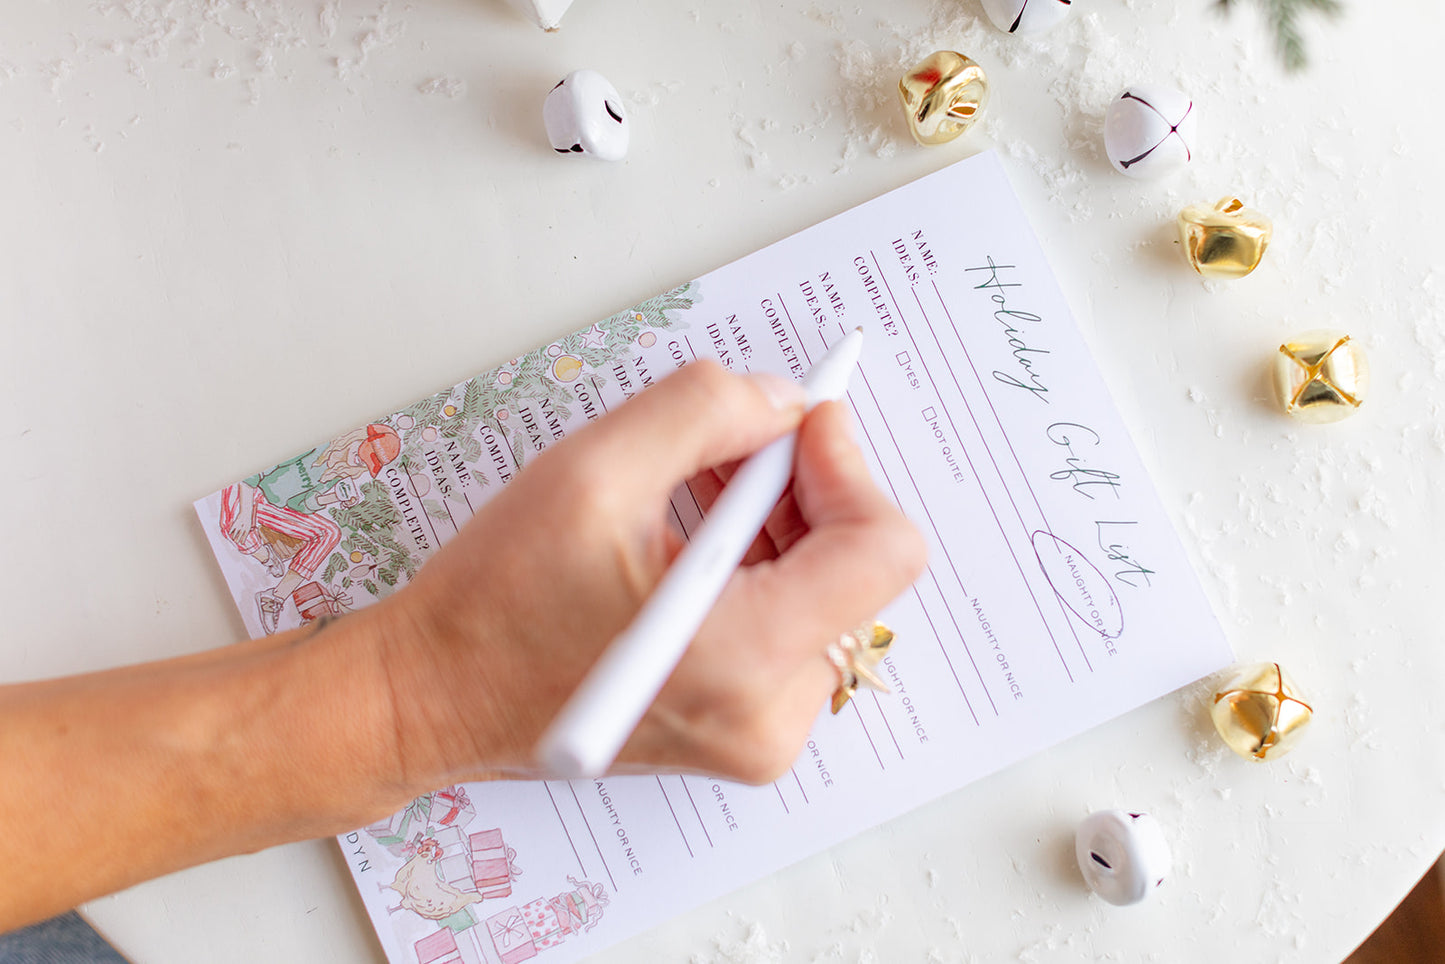 Holiday Gift List
NAME: NAUGHTY OR NICE
IDEAS:
COMPLETE? YES! NOT QUITE!
NAME: NAUGHTY OR NICE
IDEAS:
COMPLETE?
NAME: UGHTY OR NICE
IDEAS:
NAME: OR NICE
IDEAS:
NAME: OR NICE
IDEAS:
NAME: NAUGHTY OR NICE
IDEAS:
COMPLETE?
merry
DYN